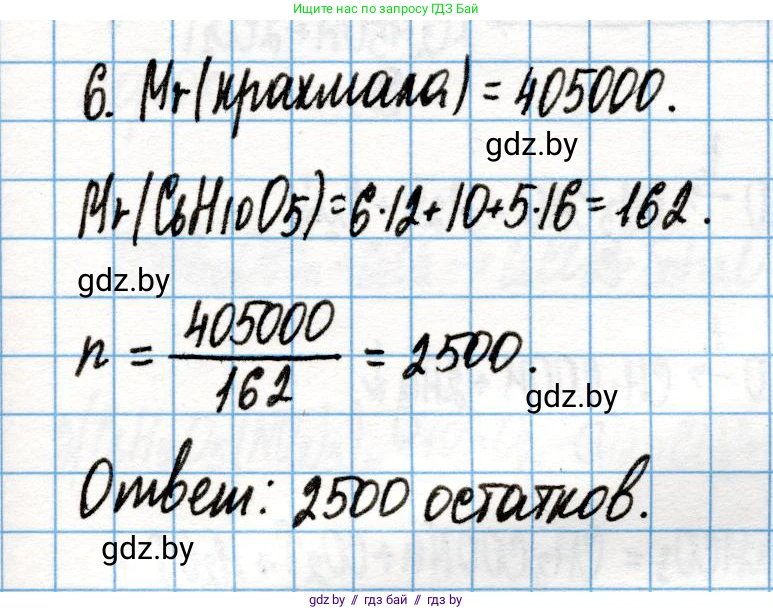 Ищите нас по запросу ГДЗ Бай
6. Mr(крахмала) = 405000.
gdz.by
Mr(C6H10O5)=6·12+10+5·16=162.
gdz.by
n = 405000/162 = 2500.
gdz.by
Ответ: 2500 остатков.
gdz.by
gdz.by // гдз бай // gdz.by